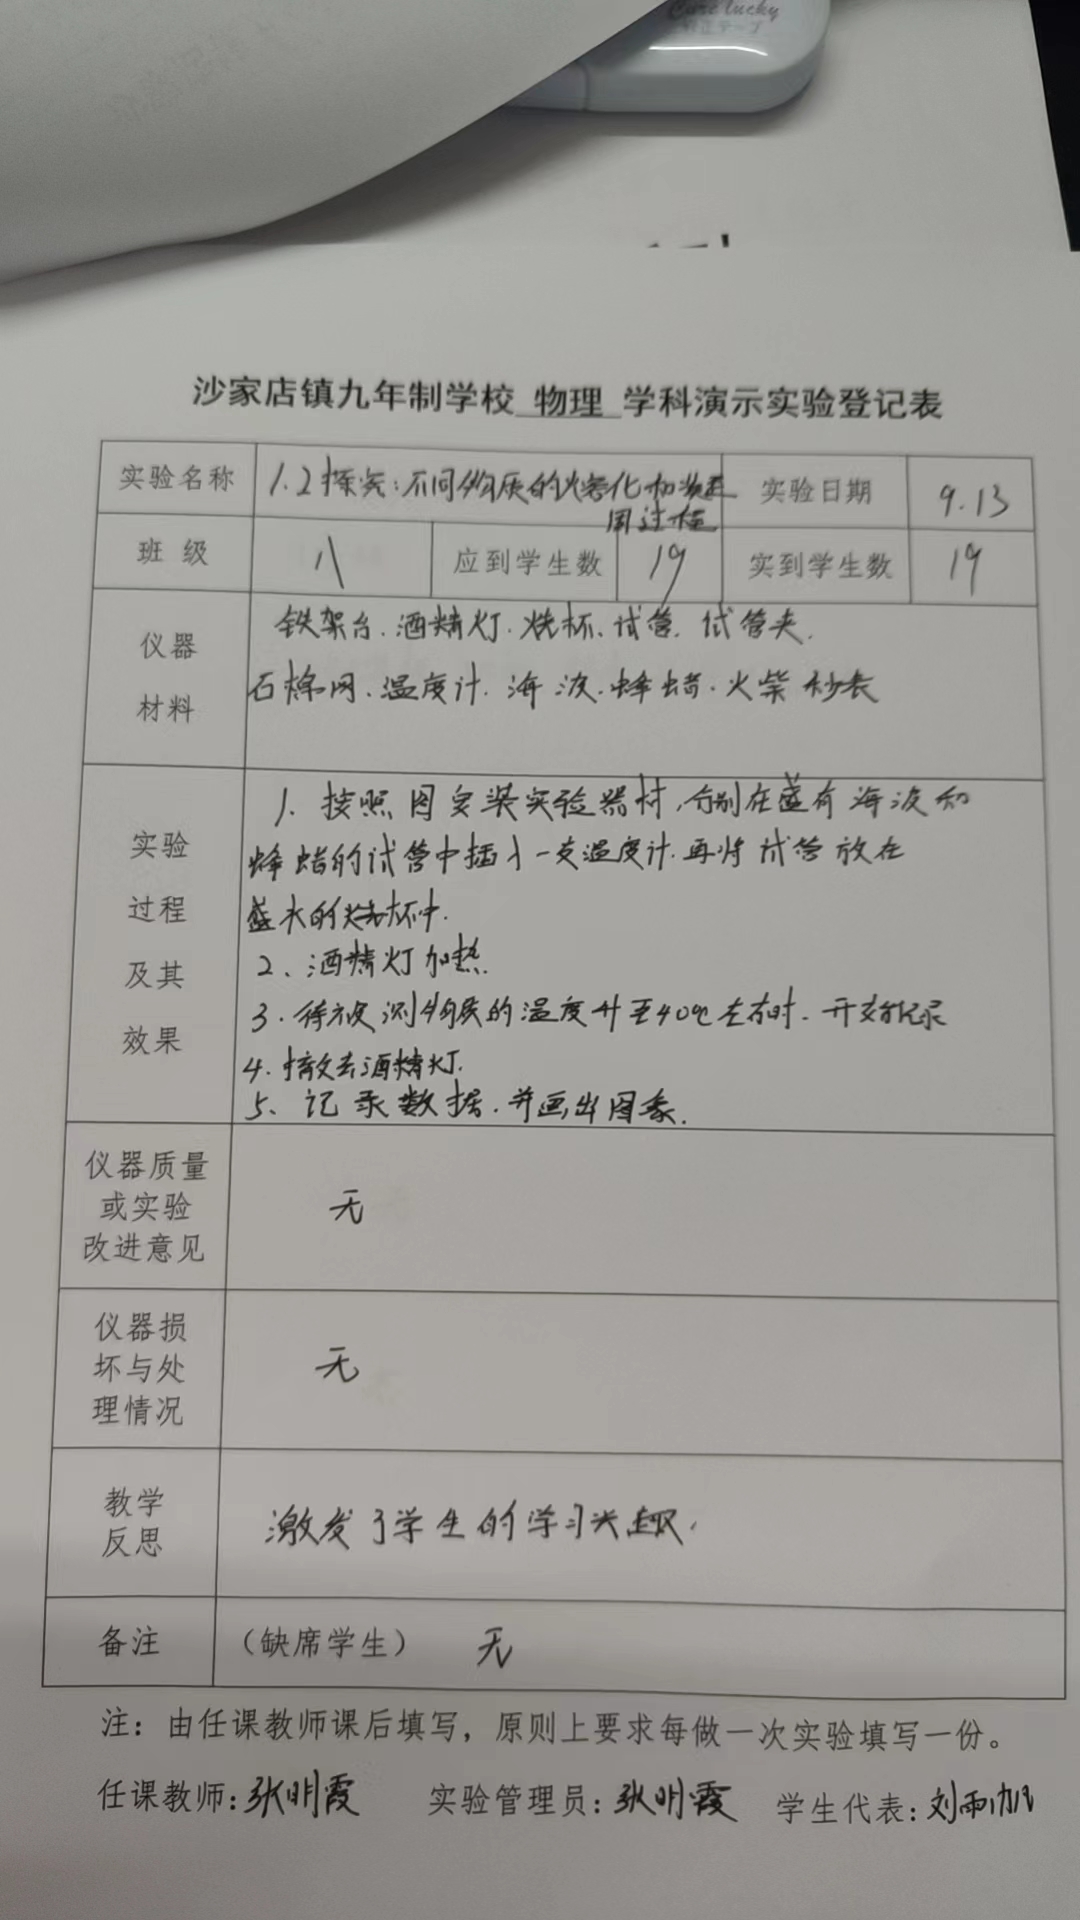 Care lucky
沙家店镇九年制学校 物理 学科演示实验登记表
实验名称 1.2探究:不同物质的熔化和凝
固过程
实验日期 9.13
班 级 八 应到学生数 19 实到学生数 19
仪器
材料
铁架台、酒精灯、烧杯、试管、试管夹、
石棉网、温度计、海波、蜂蜡、火柴 秒表
实验
过程
及其
效果
1、按照图安装实验器材,分别在盛有海波和
蜂蜡的试管中插入一支温度计.再将试管放在
盛水的烧杯中.
2、酒精灯加热.
3.待被测物质的温度升至40℃左右时.开始记录
4.撤去酒精灯.
5、记录数据.并画出图象.
仪器质量
或实验
改进意见
无
仪器损
坏与处
理情况
无
教学
反思
激发了学生的学习兴趣.
备注 (缺席学生) 无
注:由任课教师课后填写,原则上要求每做一次实验填写一份。
任课教师:张明霞 实验管理员:张明霞 学生代表:刘雨